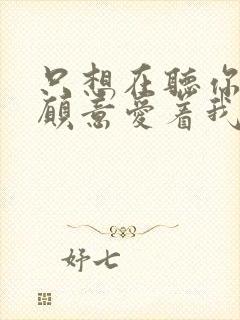 只想在聽你
願意愛着我
妤七